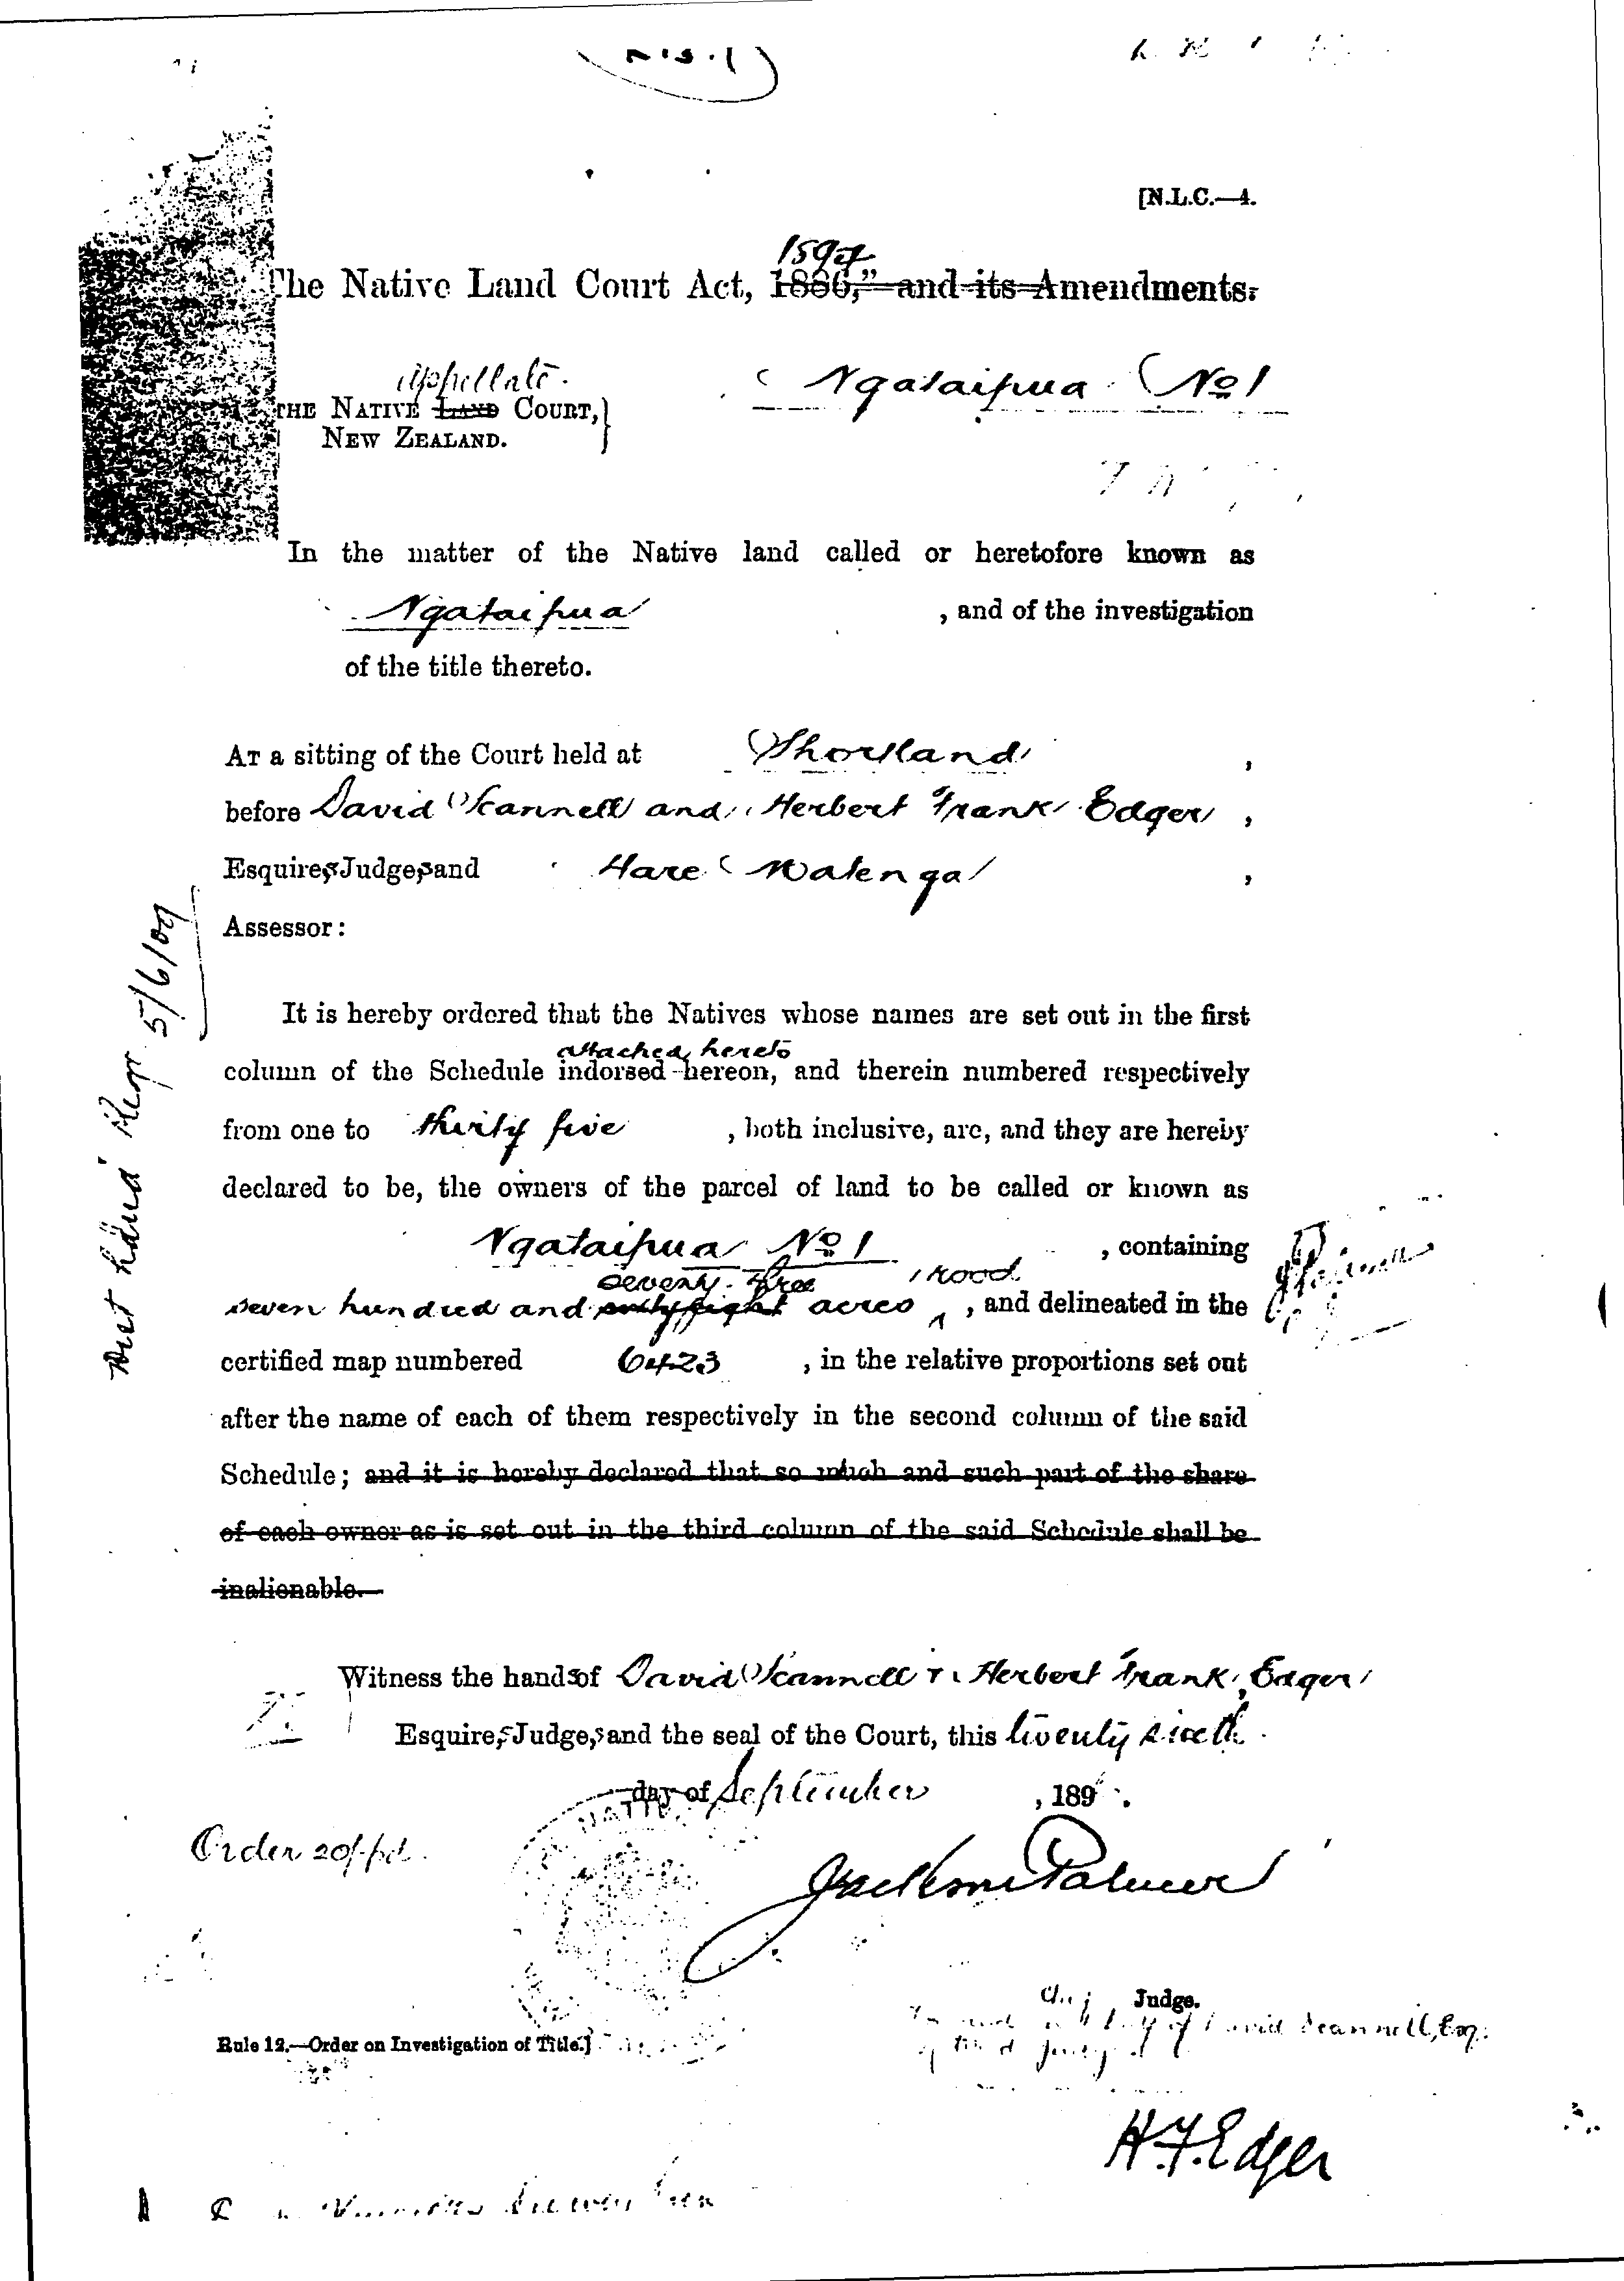 [N.L.C.—4.
The Native Land Court Act, 1886," and its Amendments.
Appellate
THE NATIVE LAND COURT,
NEW ZEALAND.
Ngataipua No 1
In the matter of the Native land called or heretofore known as
Ngataipua , and of the investigation
of the title thereto.
AT a sitting of the Court held at Shortland ,
before David Scannell and Herbert Frank Edger ,
Esquires Judges and Hare Matenga ,
Assessor:
5/6/09
It is hereby ordered that the Natives whose names are set out in the first
attached hereto
column of the Schedule indorsed hereon, and therein numbered respectively
from one to thirty five , both inclusive, are, and they are hereby
declared to be, the owners of the parcel of land to be called or known as
Ngataipua No 1 , containing
seventy three 1 rood
seven hundred and sixty eight acres , and delineated in the
certified map numbered 6423 , in the relative proportions set out
after the name of each of them respectively in the second column of the said
Schedule; and it is hereby declared that so much and such part of the share
of each owner as is set out in the third column of the said Schedule shall be
inalienable.
Witness the hands of David Scannell & Herbert Frank Edger
Esquires Judges, and the seal of the Court, this twenty sixth
day of September , 189 .
Order 20/- pd.
Jackson Palmer
Judge.
David Scannell, Esq.
Rule 12.—Order on Investigation of Title.]
H.F. Edger